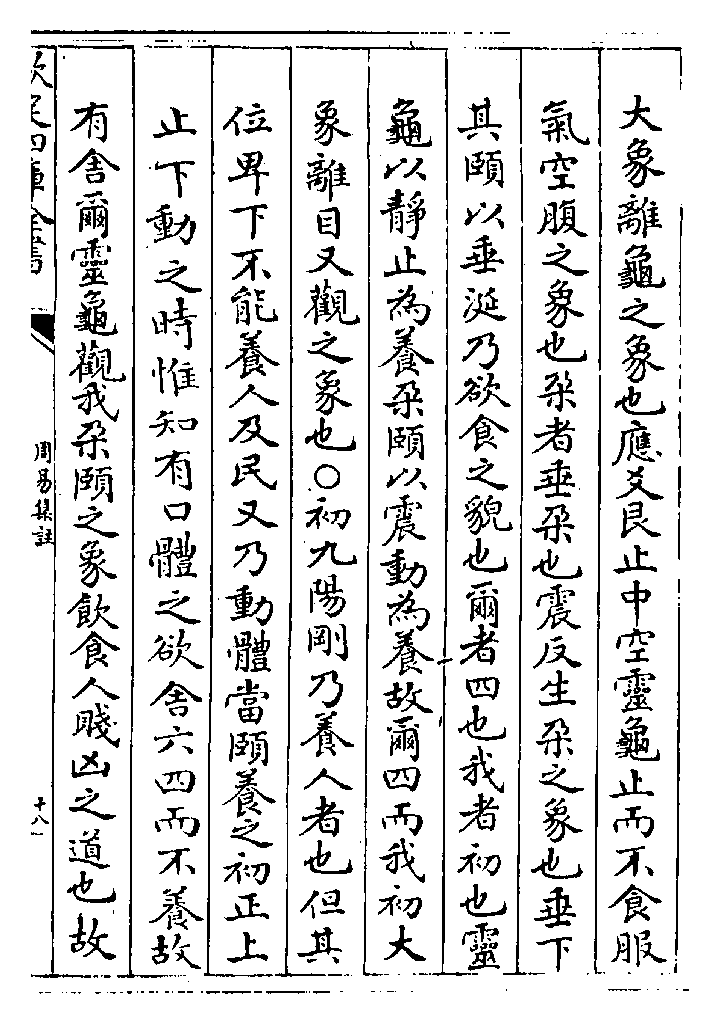 大象離龜之象也應爻艮止中空靈龜止而不食服
氣空腹之象也朶者垂朶也震反生朶之象也垂下
其頤以垂涎乃欲食之貌也爾者四也我者初也靈
龜以靜止為養朶頤以震動為養故爾四而我初大
象離目又觀之象也○初九陽剛乃養人者也但其
位卑下不能養人及民又乃動體當頤養之初正上
止下動之時惟知有口體之欲舍六四而不養故
有舍爾靈龜觀我朶頤之象飲食人賤凶之道也故
欽定四庫全書
周易集註
十八